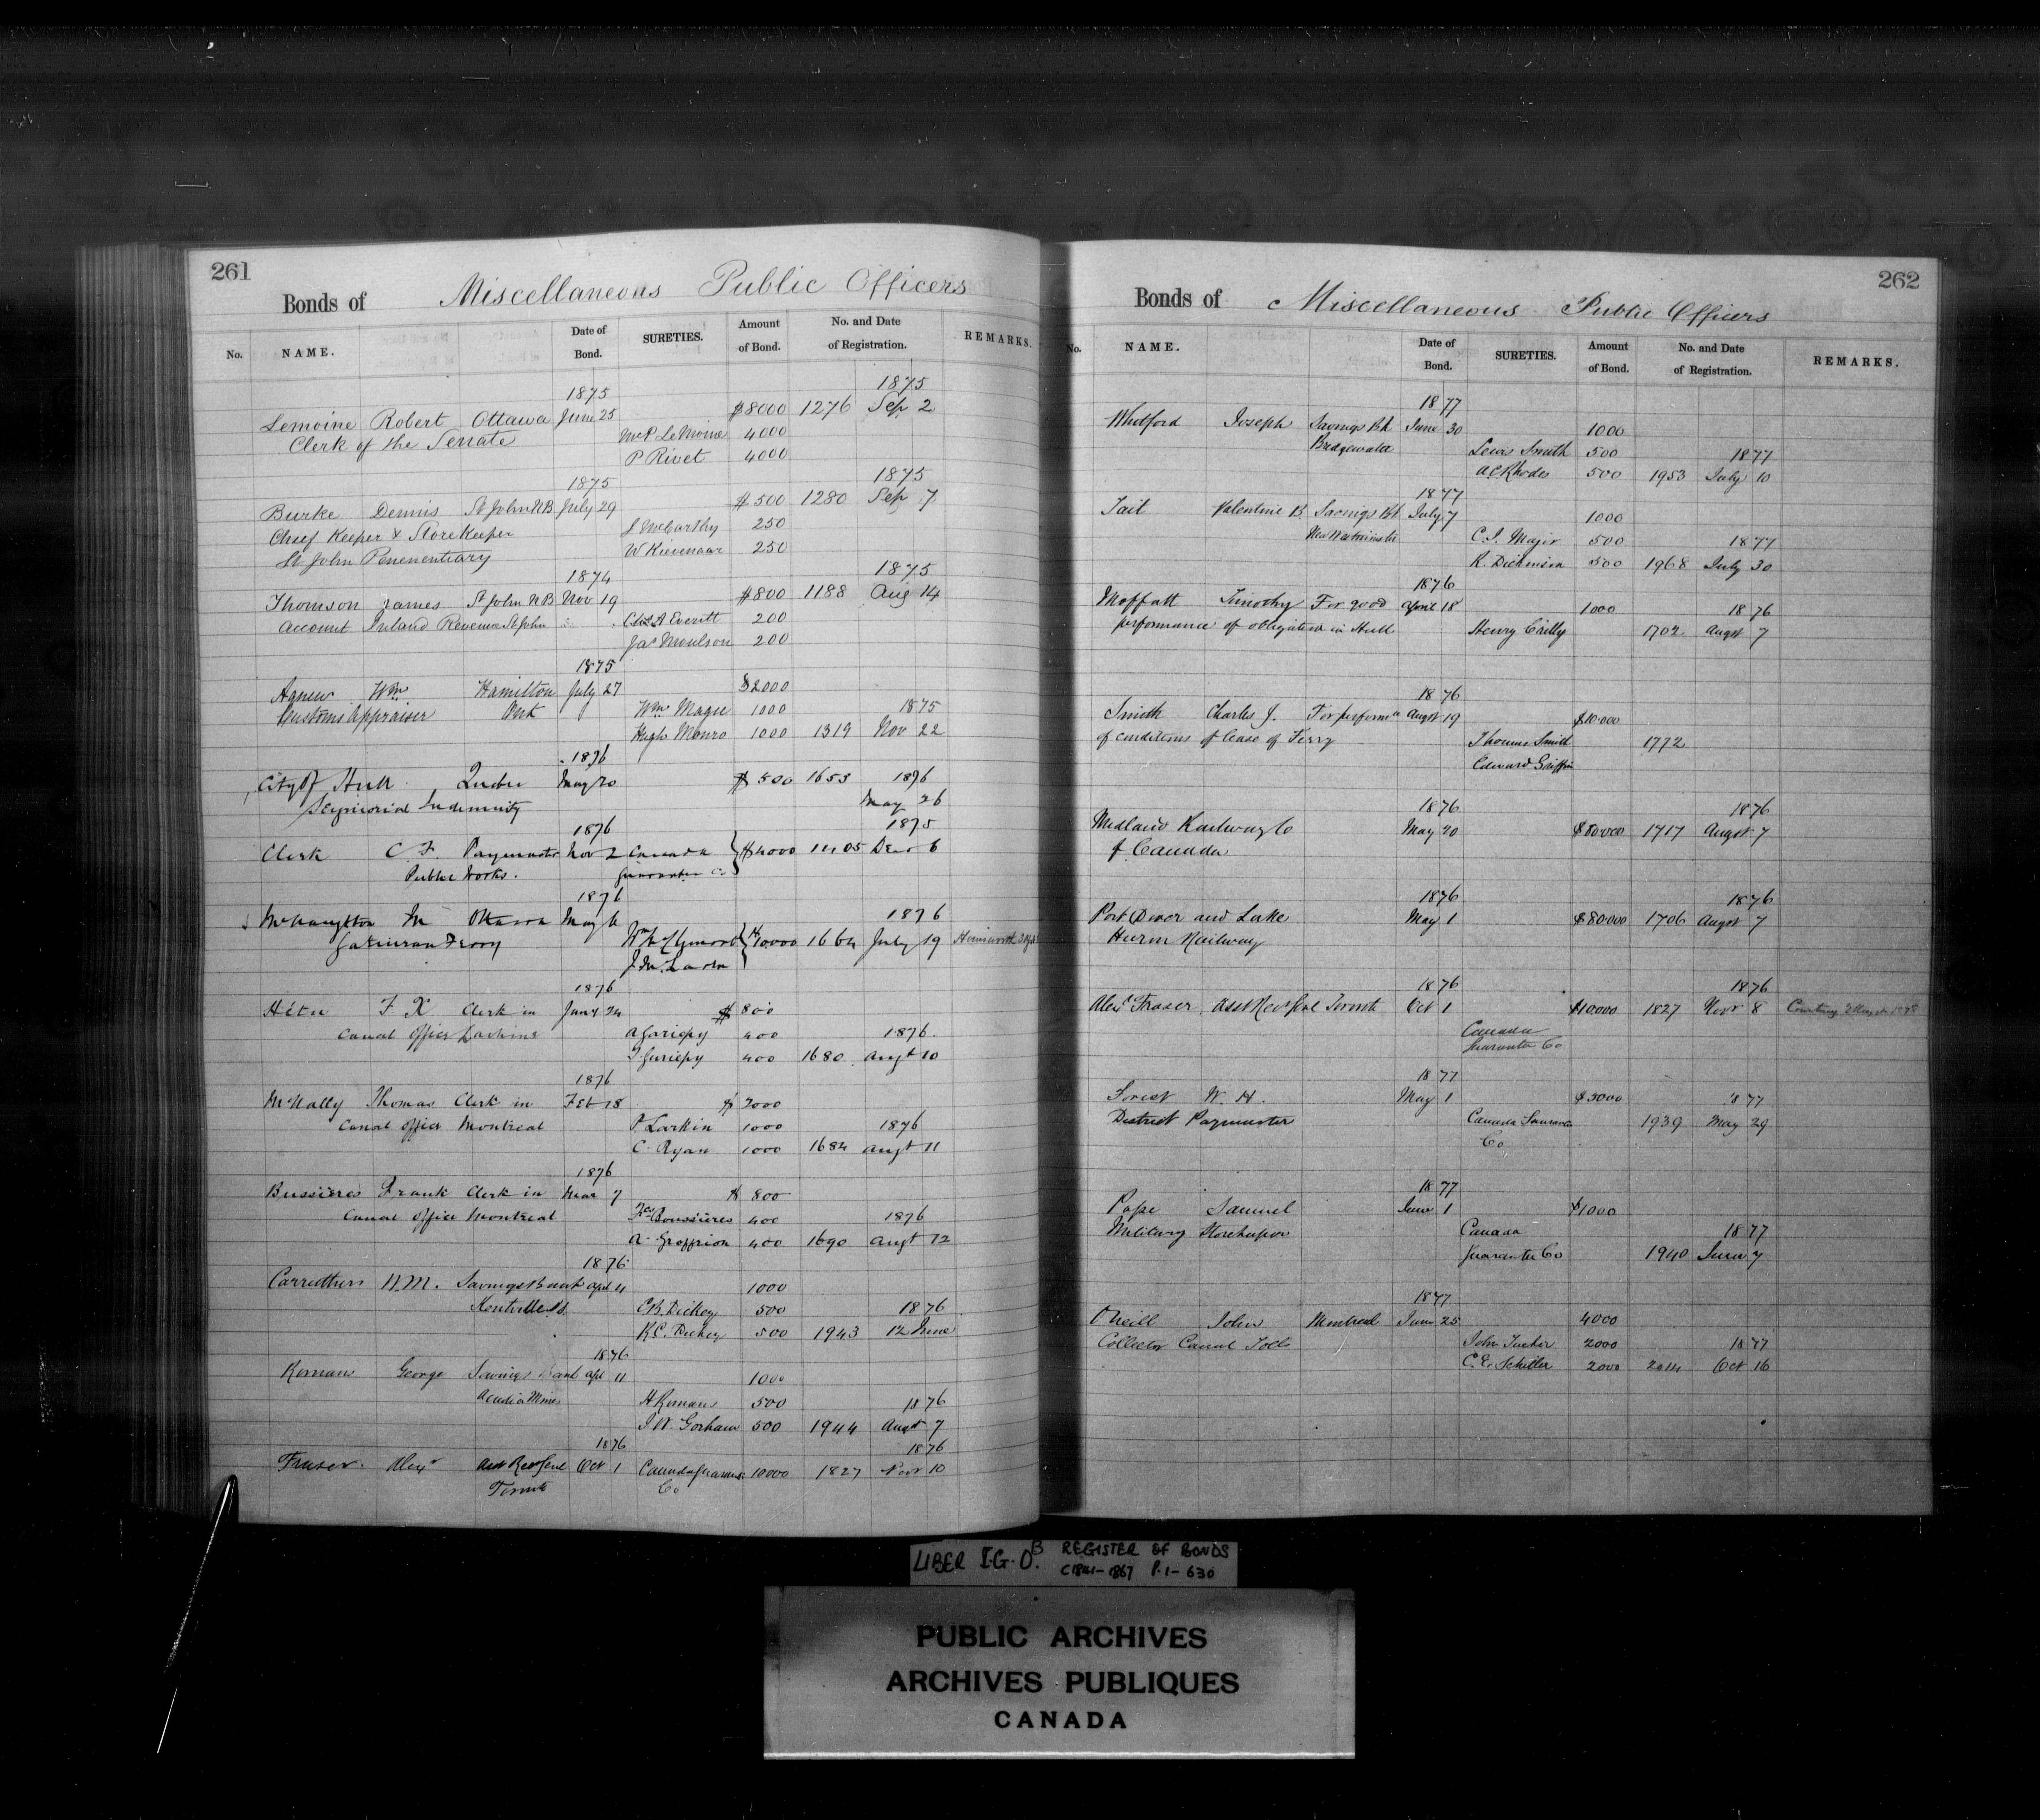 261
Bonds of Miscellaneous Public Officers
No. NAME. Date of Bond. SURETIES. Amount of Bond. No. and Date of Registration. REMARKS.
1875 1875
Lemoine Robert Ottawa June 25 $8000 1276 Sep 2
Clerk of the Senate LeMoine 4000
P Rivet 4000
1875 1875
Burke Dennis St John N.B. July 29 $500 1280 Sep 7
Chief Keeper & StoreKeeper McCarthy 250
St John Penenentiary W 250
1874 1875
Thomson James St John N B Nov 19 $800 1188 Aug 14
Account Inland Revenue St John A Everitt 200
Jas Moulson 200
1875
Agnew Wm Hamilton July 27 $2000
Customs Appraiser Ont Wm Magee 1000 1875
Hugh Monro 1000 1319 Nov 22
1876
City of Hull Quebec May 20 $500 1653 1876
Seignorial Indemnity May 26
1876 1875
Clerk C F. Paymaster Nov 2 Canada $4000 1405 Dec 6
Public Works. Guarantee Co
1876
McNaughton M Ottawa May 6 1876
Gatineau Ferry $10000 1664 July 19

1876
Hétu F X Clerk in Jany 24 $800
Canal Office Lachine A Gariepy 400 1876.
Gariepy 400 1680 Augt 10
1876
McNally Thomas Clerk in Feb 18 $2000
Canal Office Montreal P Larkin 1000 1876
C. Ryan 1000 1684 Augt 11
1876
Bussieres Frank Clerk in Mar 7 $800
Canal Office Montreal Boussieres 400 1876
A. Geoffrion 400 1690 Augt 12
1876
Carruthers W.M. Savings Bank Apl 4 1000
Kentville C.B. Dickey 500 1876
R.C. Dickey 500 1943 12 June
1876
Romans George Savings Bank Apl 11 1000
Acadia Mines H Romans 500 1876
J.W. Gorham 500 1944 Augt 7
1876 1876
Fraser Alexr Asst Rec Genl Oct 1 Canada Guarantee 10000 1827 Novr 10
Toronto Co
262
Bonds of Miscellaneous Public Officers
No. NAME. Date of Bond. SURETIES. Amount of Bond. No. and Date of Registration. REMARKS.
1877
Whitford Joseph Savings Bk June 30 1000
Bridgewater Lewis Smith 500 1877
A.C. Rhodes 500 1953 July 10
1877
Tait Valentine B. Savings Bk July 7 1000
New Westminster C.S. Major 500 1877
R. Dickinson 500 1968 July 30
1876
Moffatt Timothy For good April 18 1000 1876
performance of obligation in Hull Henry O'Reilly 1702 Augst 7
1876
Smith Charles J. For perform Augst 19 $10.000
of conditions of lease of Ferry Thomas Smith 1772
Edward Griffin
1876 1876
Midland Railway Co May 20 $80000 1717 Augst 7
of Canada
1876 1876
Port Dover and Lake May 1 $80000 1706 Augst 7
Huron Railway
1876 1876
Alexr Fraser Asst Recr Genl Toronto Oct 1 $10000 1827 Novr 8
Canada
Guarantee Co
1877
Forest W. H. May 1 $3000 1877
District Paymaster Canada 1939 May 29
Co
1877
Pope Samuel June 1 $1000
Military Storekeeper Canada 1877
Guarantee Co 1940 June 7
1877
O'Neill John Montreal June 25 4000
Collector Canal Tolls John Tucker 2000 1877
C.E. Schiller 2000 2014 Oct 16
LIBER I.G.O.B REGISTER OF BONDS
C1841-1867 P.1-630
PUBLIC ARCHIVES
ARCHIVES PUBLIQUES
CANADA